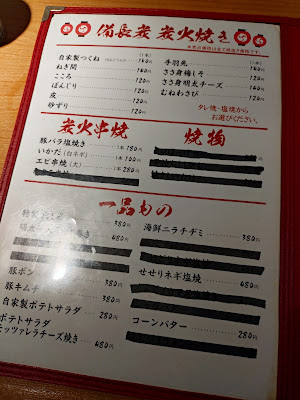 備長炭 炭火焼き
(1本)
自家製つくね 160円
ねぎ間 140円
こころ 120円
ぼんじり 120円
皮 120円
砂ずり 120円
(1本)
手羽先 160円
ささ身梅しそ 120円
ささ身明太チーズ 140円
むねわさび 120円
タレ焼・塩焼から
お選びください。
炭火串焼
豚バラ塩焼き 1本 180円
いかだ(白ネギ) 1本 100円
エビ串焼(大) 1本 280円
焼物
一品もの
特製
380円
480円
豚ポン 380円
豚キムチ 380円
自家製ポテトサラダ 280円
ポテトサラダ
モッツァレラチーズ焼き 480円
海鮮ニラチヂミ 380円
せせりネギ塩焼 480円
コーンバター 280円